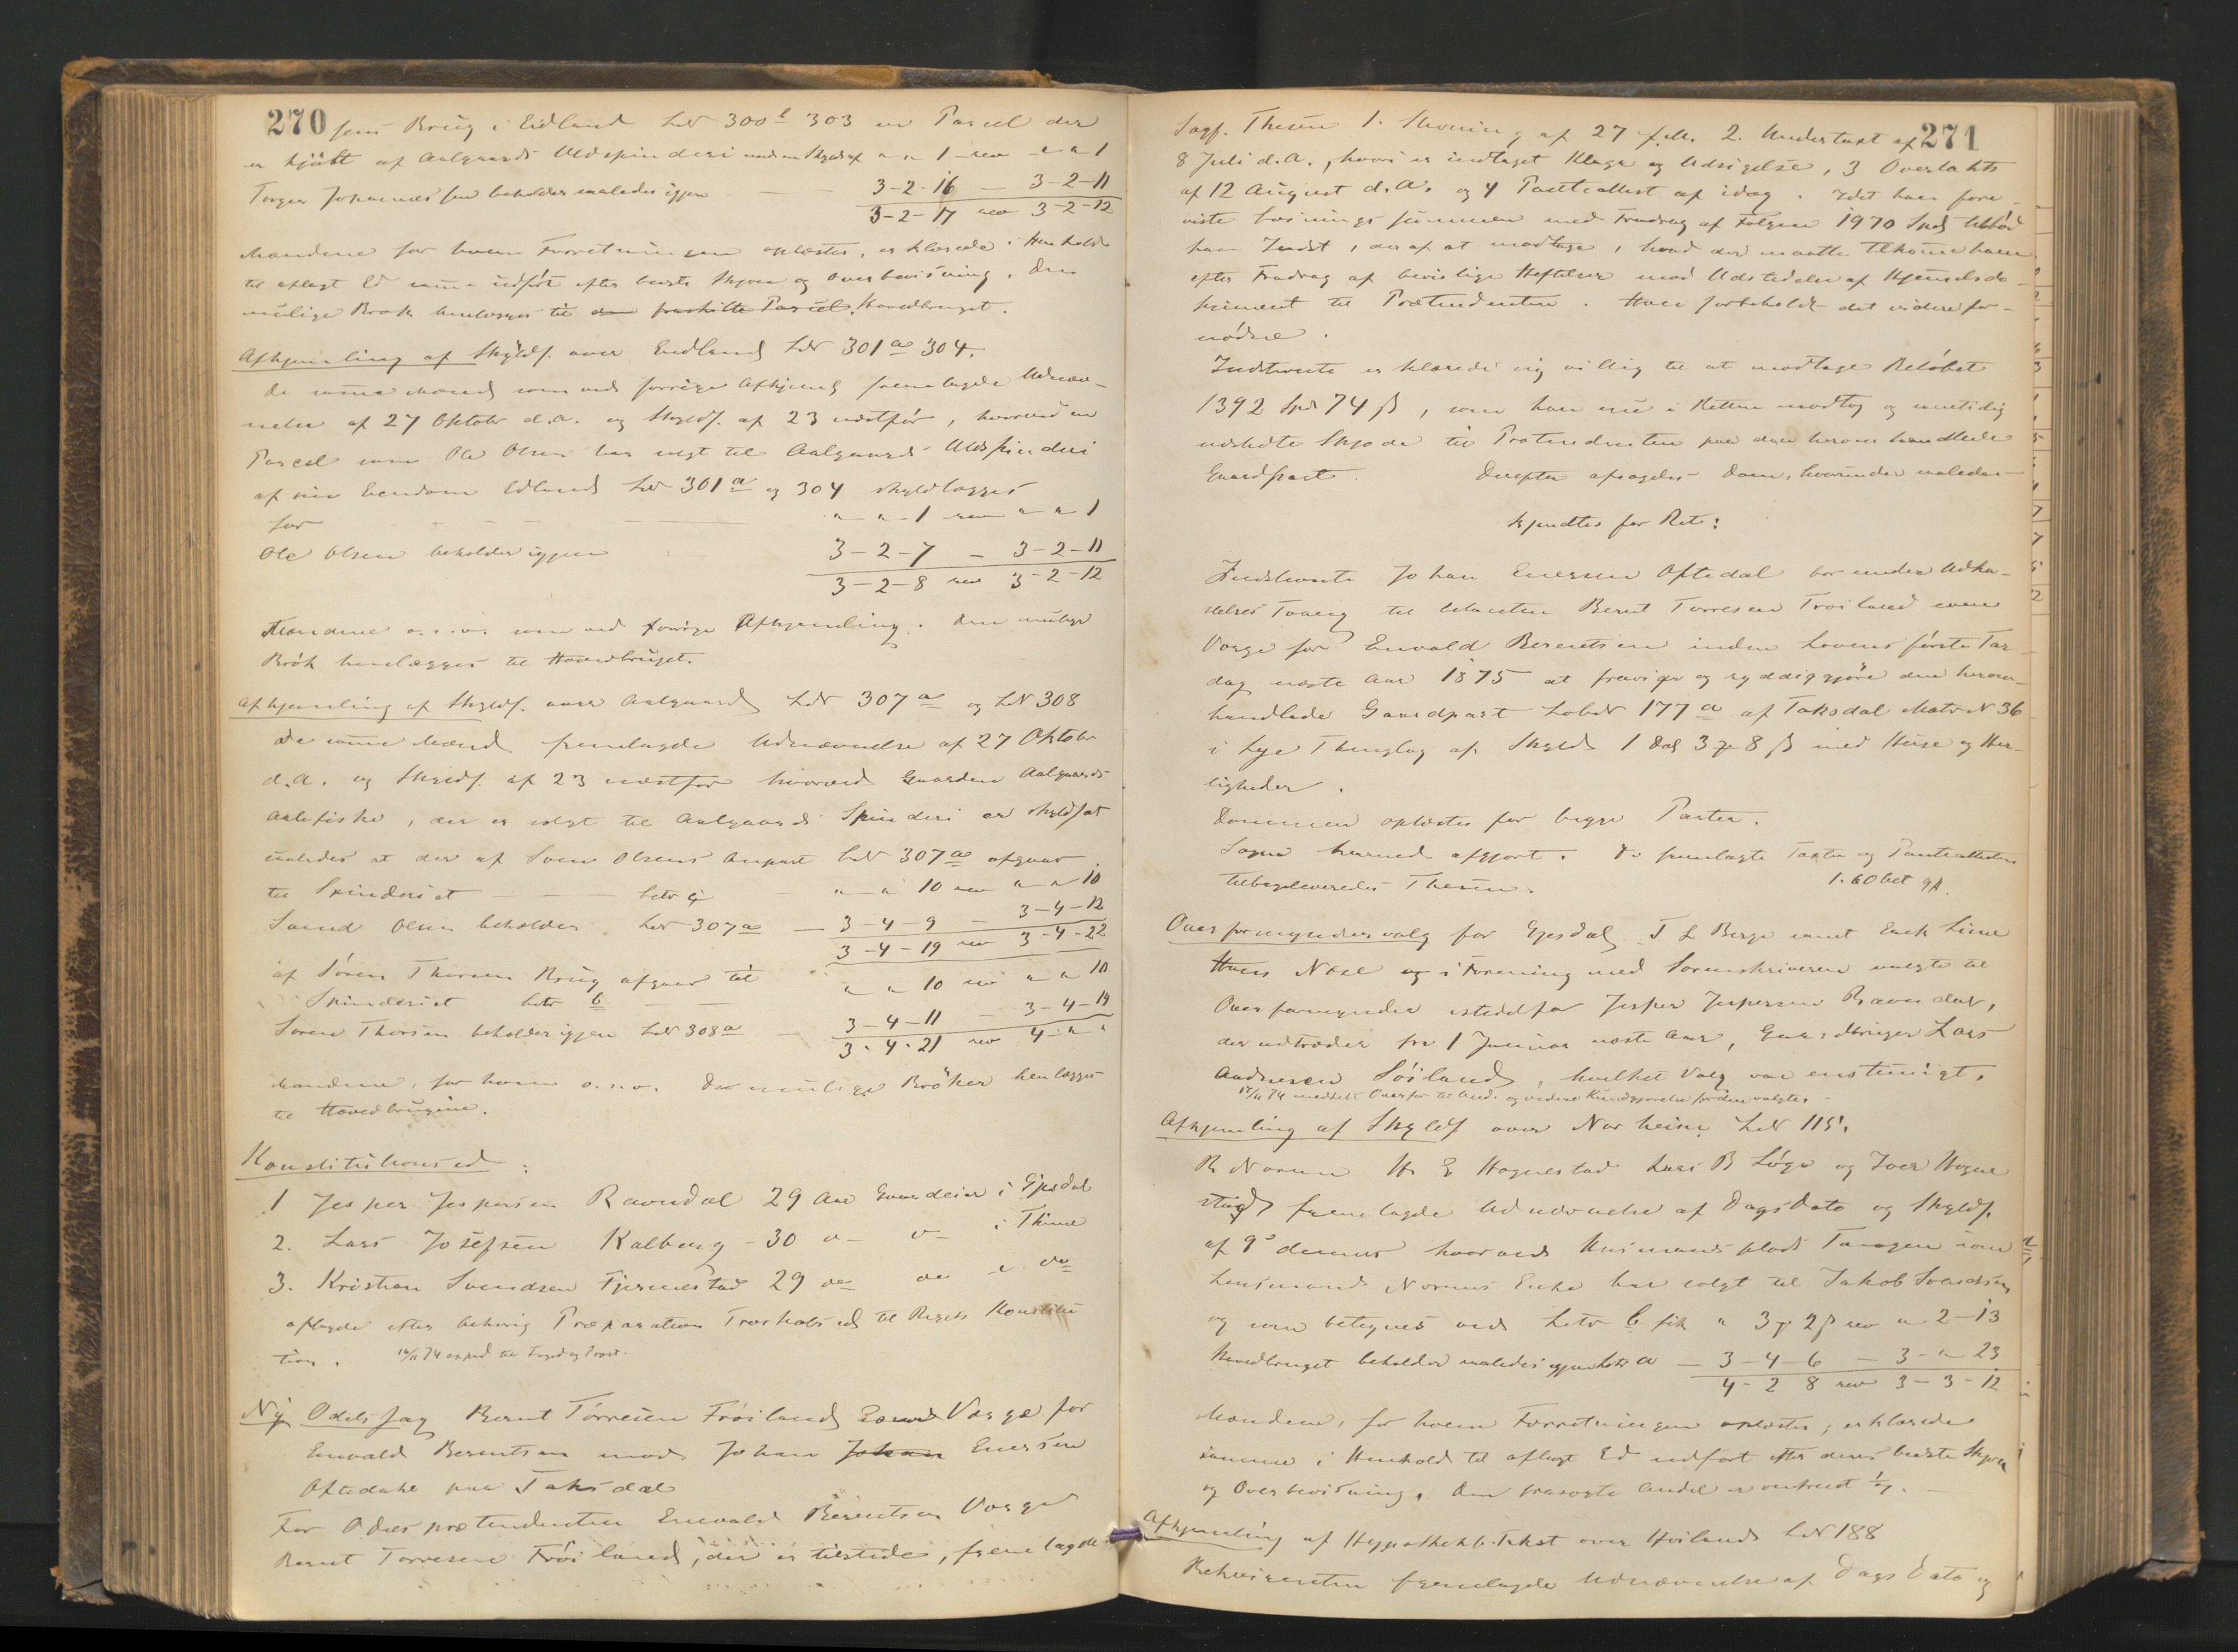 270
sens Brug i Eidland LN 300 b 303 en Parcel der
er kjøbt af Aalgaards Uldspinderi med en Skyld af " " 1 rev " " 1
Torger Johannessen beholder saaledes igjen 3-2-16 — 3-2-11
3-2-17 rev 3-2-12
Mændene for hvem Forretningen oplæstes, erklærede i Henhold
til aflagt Ed samme udført efter bedste Skjøn og Overbevisning. Den
mulige Brøk henlægges til den fraskilte Parcel. Hovedbruget.
Afhjemling af Skyldf. over Eidland LN 301 a 304.
De samme Mænd som ved forrige Afhjeml. fremlagde Udnæv-
nelse af 27 Oktobr d.A. og Skyldf. af 23 næstfør, hvorved en
Parcel som Ole Olsen har solgt til Aalgaards Uldspinderi
af sin Eiendom Edland LN 301 a og 304 skyldlægges
for " " 1 rev " " 1
Ole Olsen beholder igjen 3-2-7 — 3-2-11
3-2-8 rev 3-2-12
Mændene o.s.v. som ved forrige Afhjemling. Den mulige
Brøk henlægges til Hovedbruget.
Afhjemling af Skyldf. over Aalgaard LN 307 a og LN 308
De samme Mænd fremlagde Udnævnelse af 27 Oktobr
d.A. og Skyldf. af 23 næstfør hvorved Gaarden Aalgaards
Aalefiske, der er solgt til Aalgaards Spinderi er skyldsat
saaledes at der af Sven Olsens Anpart LN 307 a afgaar
til Spinderiet — litr " " 10 rev " " 10
Svend Olsen beholder LN 307 a — 3-4-9 — 3-4-12
3-4-19 rev 3-4-22
af Sören Thorsens Brug afgaar til
Spinderiet litr b " " 10 rev " " 10
Sören Thorsen beholder igjen LN 308 a — 3-4-11 — 3-4-19
3-4-21 rev 4 " "
Mændene, for hvem o.s.v. De mulige Brøker henlægges
til Hovedbrugene.
Konstitutionsed:
1 Jesper Jespersen Ravndal 29 Aar Gaardeier i Gjesdal
2. Lars Josefsen Kalberg - 30 do do i Thime
3. Kristian Svendsen Fjermestad 29 do do i do
aflagde efter behørig Præparation Troskabsed til Rigets Konstitu
tion. 14/11 74 exped. til Foged og Provst.
Ny Odelssag Bernt Törresen Fröiland Værge for
Enevald Berentsen mod Johan Johan Enersen
Oftedahl paa Taksdal
For Odelsprætendenten Enevald Berentsen Værge
Bernt Torresen Fröiland, der er tilstede, fremlagde
271
Sagf. Thesen 1. Stevning af 27 f.M. 2. Undertaxt af
8 Juli d.A., hvori er indtaget Klage og Udsigelse, 3 Overtakts
af 12 August d.A. og 4 Panteattest af idag. Idet han fore-
viste Løsningssummen med Fradrag af Følgen 1970 Spd. tilbød
han Indst, deraf at modtage, hvad der maatte tilkomme ham
efter Fradrag af bevislige Heftelser mod Udstedelse af Hjemmelsdo-
kument til Prætendenten. Han forbeholdt det videre for-
nødne.
Indstevnte erklærede sig villig til at modtage Beløbet
1392 Spd 74 ß, som han nu i Retten modtog og samtidig
udstedte Skjøde til Prætendenten paa den herom handlede
Gaardpart. Derefter afsagdes Dom, hvorunder saaledes
kjendtes for Ret:
Indstevnte Johan Enersen Oftedal bør under Udka-
stelses Tvang til Citanten Bernt Torresen Froiland som
Værge for Enevald Berentsen inden Lovens første Far-
dag næste Aar 1875 at fravige og ryddiggjøre den herom-
handlede Gaardpart LøbeN 177 a af Taksdal Matr N 36
i Lye Thinglag af Skyld 1 Dal 3 ort 8 ß med Huse og Her-
ligheder.
Dommen oplæstes for begge Parter.
Sagen hermed afgjort. De fremlagte Taxter og Panteattesten
tilbageleveredes Thesen. 1.60 bet
Overformyndervalg for Gjesdal. T L Berge samt Enok Lima
Hans Næse og i Forening med Sorenskriveren valgte til
Overformynder istedetfor Jesper Jespersen Ravndal,
der udtræder fra 1 Januar næste Aar, Gaardbruger Lars
Andresen Söiland, hvilket Valg var enstemigt.
14/11 74 meddelt Overfor til Und. og videre Kundgjørelse for den valgte.
Afhjemling af Skyldf over Norheim LN 115.
R Norum H E Hognestad Lars B Løge og Iver Hogne
stad fremlagde Udnævnelse af Dags Dato og Skyldf.
af 9de dennes hvorved Husmandsplads Tangen som
Lensmand Norums Enke har solgt til Jakob Svendsen
og som betegnes ved Litr b fik " 3 ort 2 ß rev " 2-13
Hovedbruget beholder saaledes igjen Litr a — 3-4-6 — 3-"-23
4-2-8 rev 3-3-12
Mændene, for hvem Forretningen oplæstes, erklærede
samme i Henhold til aflagt Ed udført efter deres bedste Skjøn
og Overbevisning. Den frasolgte Andel er omtrent 1/7.
Afhjemling af Hypothekb. Takst over Höiland LN 188
Rekvirenten fremlagde Udnævnelse af Dags Dato og